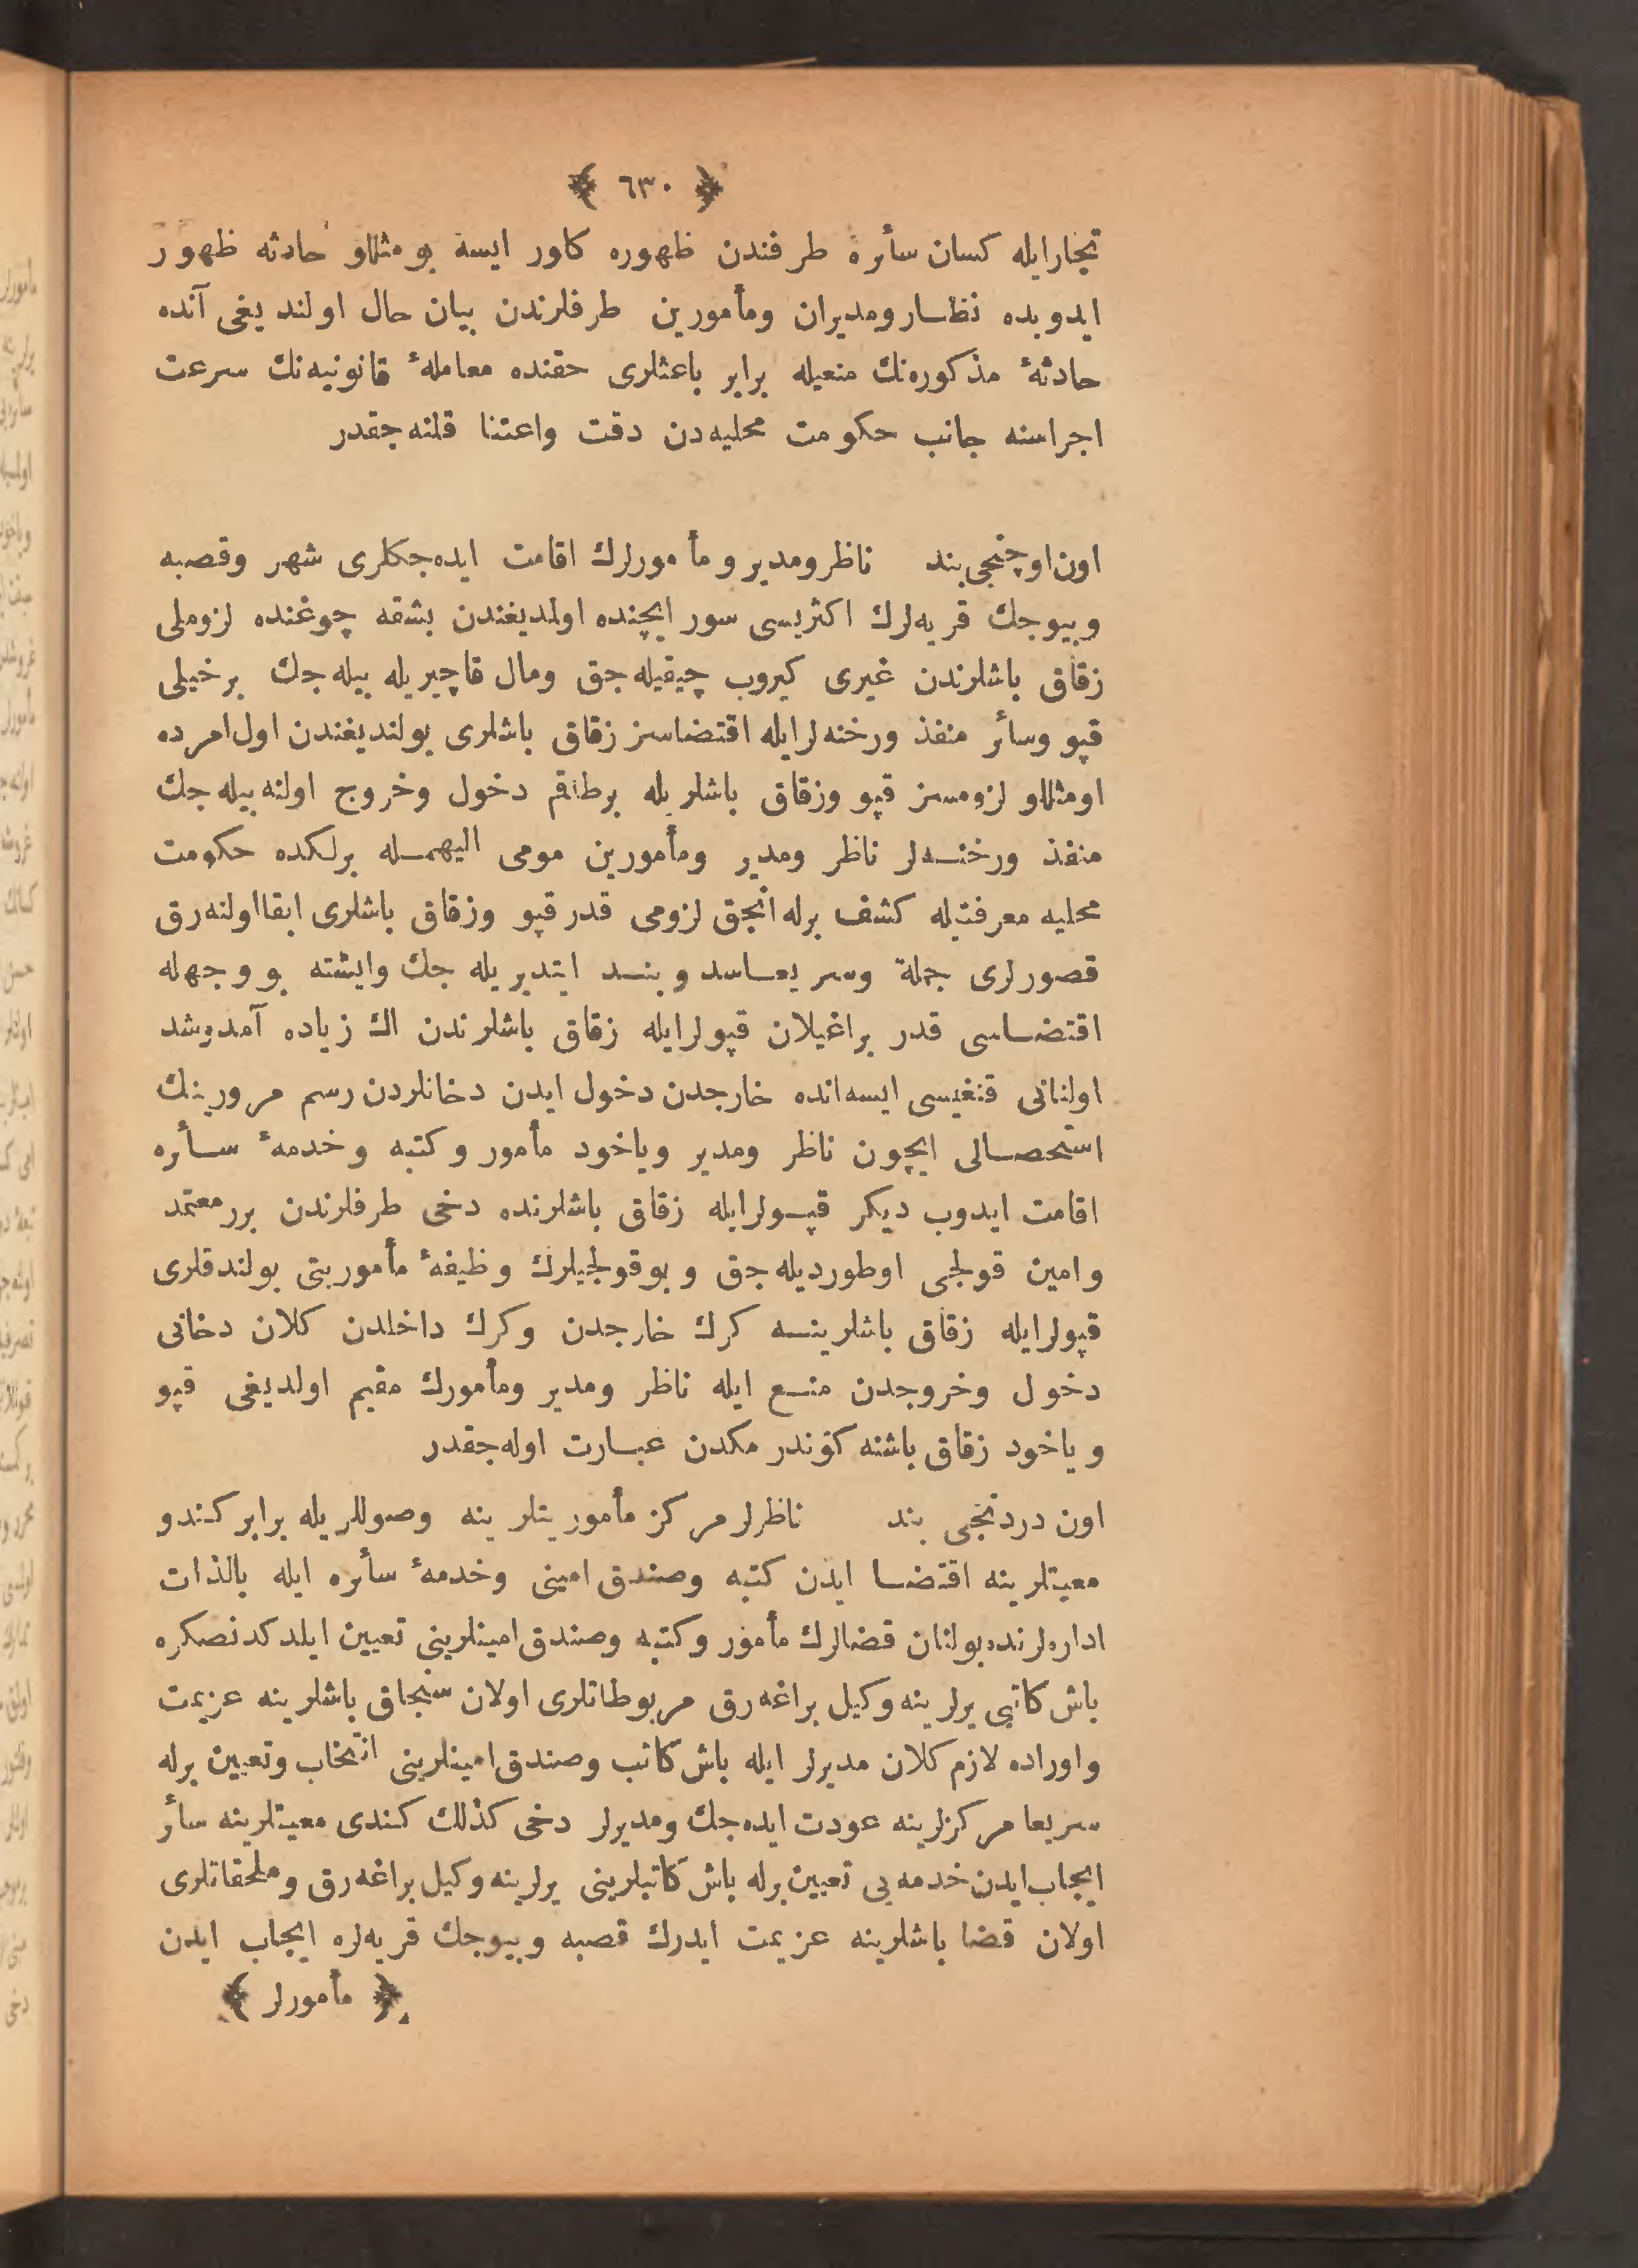 ﴿ ٦٣٠ ﴾
تجار ایله کسان سأره طرفندن ظهوره کلور ایسه بو مثللو حادثه ظهور
ایدوبده نظار ومدیران ومأمورین طرفلرندن بیان حال اولندیغی آنده
حادثهٔ مذکوره‌نك منعیله برابر باعثلری حقنده معاملهٔ قانونیه‌نك سرعت
اجراسنه جانب حکومت محلیه‌دن دقت واعتنا قلنه‌جقدر
اون اوچنجی بند ناظر ومدیر و مأمورلرك اقامت ایده‌جکلری شهر وقصبه
و بیوجك قریه‌لرك اکثریسی سور ایچنده اولمدیغندن بشقه چوغنده لزوملی
زقاق باشلرندن غیری کیروب چیقیله‌جق ومال قاچیریله بیله‌جك برخیلی
قپو وسأر منفذ ورخنه‌لر ایله اقتضاسز زقاق باشلری بولندیغندن اول امرده
اومثللو لزومسز قپو وزقاق باشلریله برطاقم دخول وخروج اولنه بیله‌جك
منفذ ورخنه‌لر ناظر ومدیر ومأمورین مومی الیهمله برلکده حکومت
محلیه معرفتیله کشف برله انجق لزومی قدر قپو وزقاق باشلری ابقا اولنه‌رق
قصورلری جملة وسریعا سد و بند ایتدیریله‌جك وایشته بو وجهله
اقتضاسی قدر براغیلان قپولر ایله زقاق باشلرندن اك زیاده آمدوشد
اولنانی قنغیسی ایسه‌انده خارجدن دخول ایدن دخانلردن رسم مرورینك
استحصالی ایچون ناظر ومدیر ویاخود مأمور و کتبه و خدمهٔ سأره
اقامت ایدوب دیکر قپولر ایله زقاق باشلرنده دخی طرفلرندن برر معتمد
و امین قولجی اوطوردیله‌جق و بو قولجیلرك وظیفهٔ مأموریتی بولندقلری
قپولر ایله زقاق باشلرینه کرك خارجدن وکرك داخلدن کلان دخانی
دخول وخروجدن منع ایله ناظر ومدیر ومأمورك مقیم اولدیغی قپو
و یاخود زقاق باشنه کوندرمکدن عبارت اوله‌جقدر
اون دردنجی بند ناظرلر مرکز مأموریتلرینه وصوللریله برابر کندو
معیتلرینه اقتضا ایدن کتبه وصندق امینی وخدمهٔ سأره ایله بالذات
اداره‌لرنده بولنان قضالرك مأمور وکتبه وصندق امینلرینی تعیین ایلدکدنصکره
باش کاتبی یرلرینه وکیل براغه‌رق مربوطاتلری اولان سنجاق باشلرینه عزیمت
واوراده لازم کلان مدیرلر ایله باش کاتب وصندق امینلرینی انتخاب وتعیین برله
سریعا مرکزلرینه عودت ایده‌جك ومدیرلر دخی کذلك کندی معیتلرینه سأر
ایجاب ایدن خدمه‌یی تعیین برله باش کاتبلرینی یرلرینه وکیل براغه‌رق وملحقاتلری
اولان قضا باشلرینه عزیمت ایدرك قصبه و بیوجك قریه‌لره ایجاب ایدن
﴿ مأمورلر ﴾